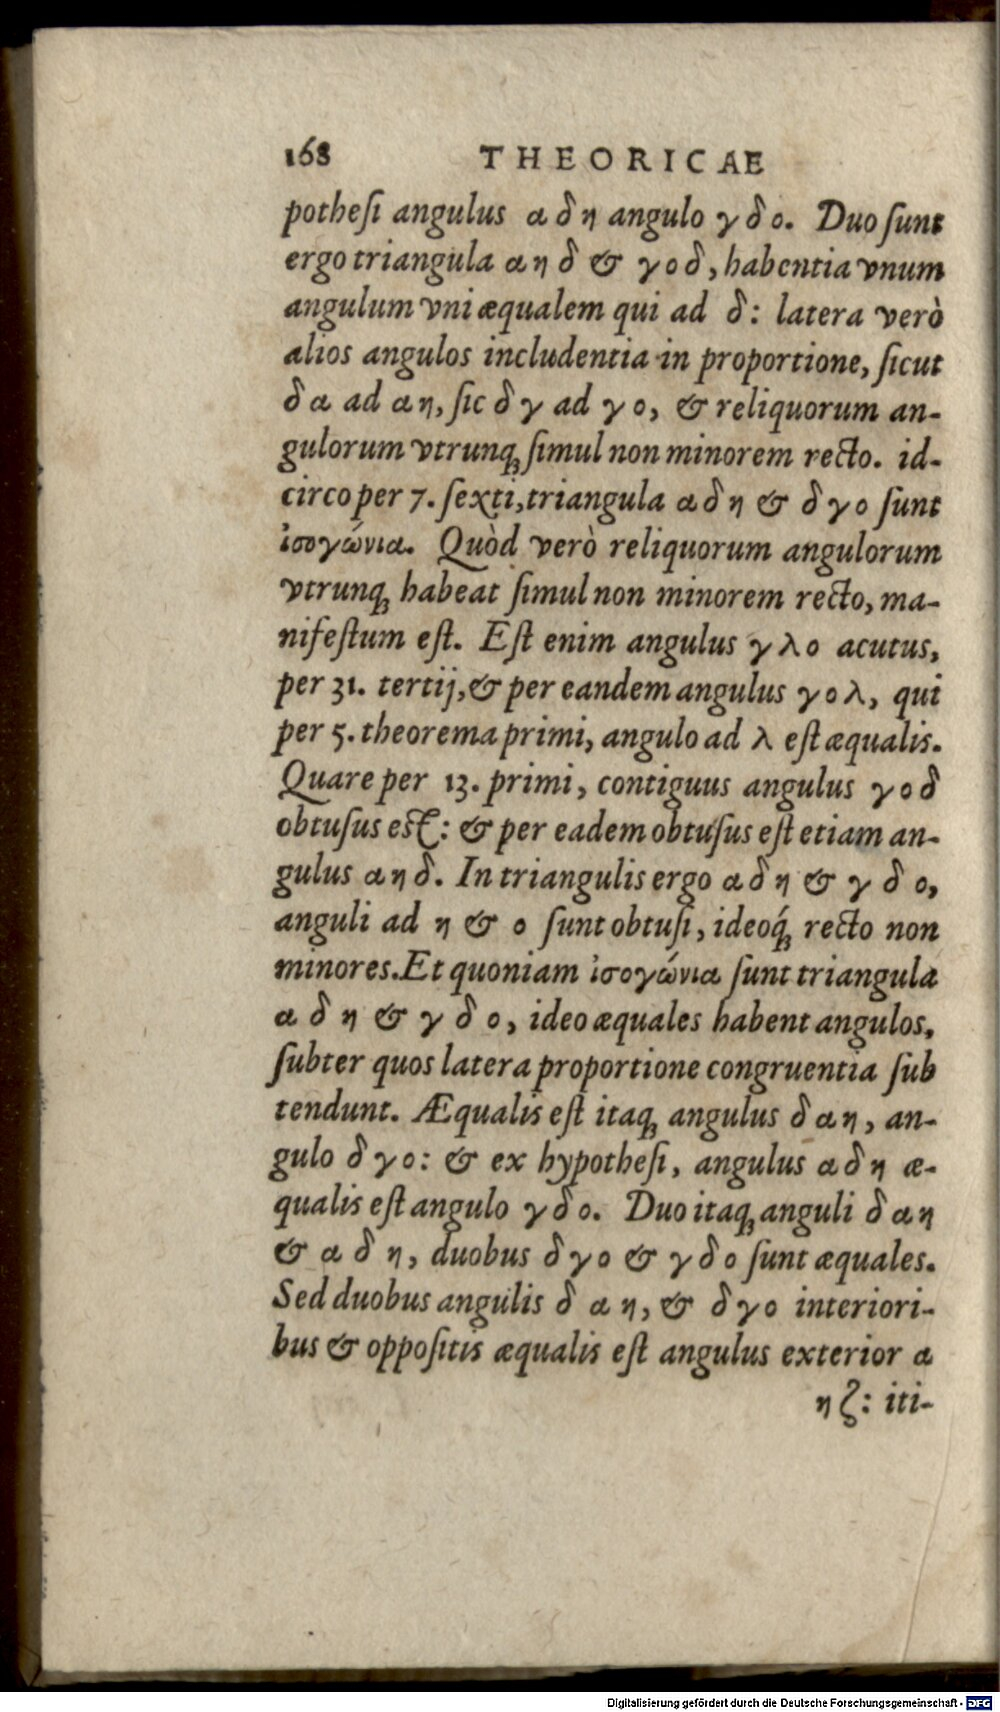 168 THEORICAE
potheſi angulus α δ η angulo γ δ ο. Duo ſunt
ergo triangula α η δ & γ ο δ, habentia vnum
angulum vni æqualem qui ad δ: latera verò
alios angulos includentia in proportione, ſicut
δ α ad α η, ſic δ γ ad γ ο, & reliquorum an-
gulorum vtrunq; ſimul non minorem recto. id-
circo per 7. ſexti, triangula α δ η & δ γ ο ſunt
ἰσογώνια. Quòd verò reliquorum angulorum
vtrunq; habeat ſimul non minorem recto, ma-
nifeſtum eſt. Eſt enim angulus γ λ ο acutus,
per 31. tertij, & per eandem angulus γ ο λ, qui
per 5. theorema primi, angulo ad λ eſt æqualis.
Quare per 13. primi, contiguus angulus γ ο δ
obtuſus eſt: & per eadem obtuſus eſt etiam an-
gulus α η δ. In triangulis ergo α δ η & γ δ ο,
anguli ad η & ο ſunt obtuſi, ideoq́; recto non
minores. Et quoniam ἰσογώνια ſunt triangula
α δ η & γ δ ο, ideo æquales habent angulos,
ſubter quos latera proportione congruentia ſub
tendunt. Æqualis eſt itaq; angulus δ α η, an-
gulo δ γ ο: & ex hypotheſi, angulus α δ η æ-
qualis eſt angulo γ δ ο. Duo itaq; anguli δ α η
& α δ η, duobus δ γ ο & γ δ ο ſunt æquales.
Sed duobus angulis δ α η, & δ γ ο interiori-
bus & oppoſitis æqualis eſt angulus exterior α
η ζ: iti-
Digitalisierung gefördert durch die Deutsche Forschungsgemeinschaft - DFG